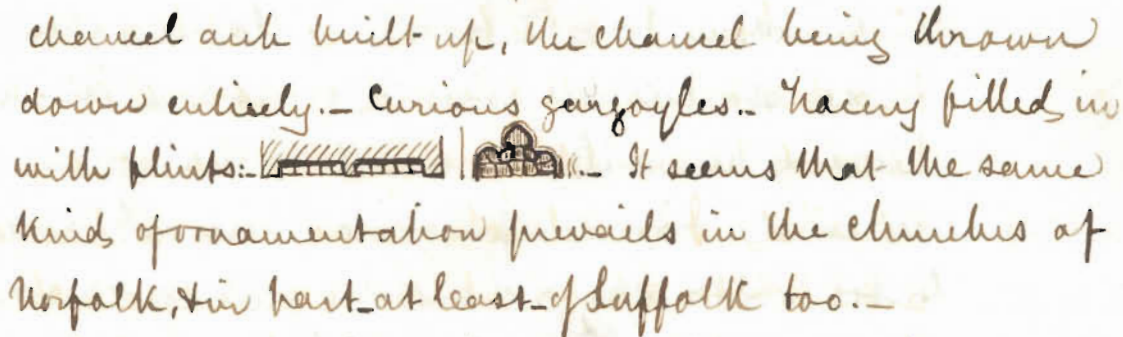 chancel arch built up, the chancel being thrown
down entirely. – Curious gargoyles. – Tracery filled in
with flints: – It seems that the same
kind of ornamentation prevails in the churches of
Norfolk, & in part – at least – of Suffolk too. –